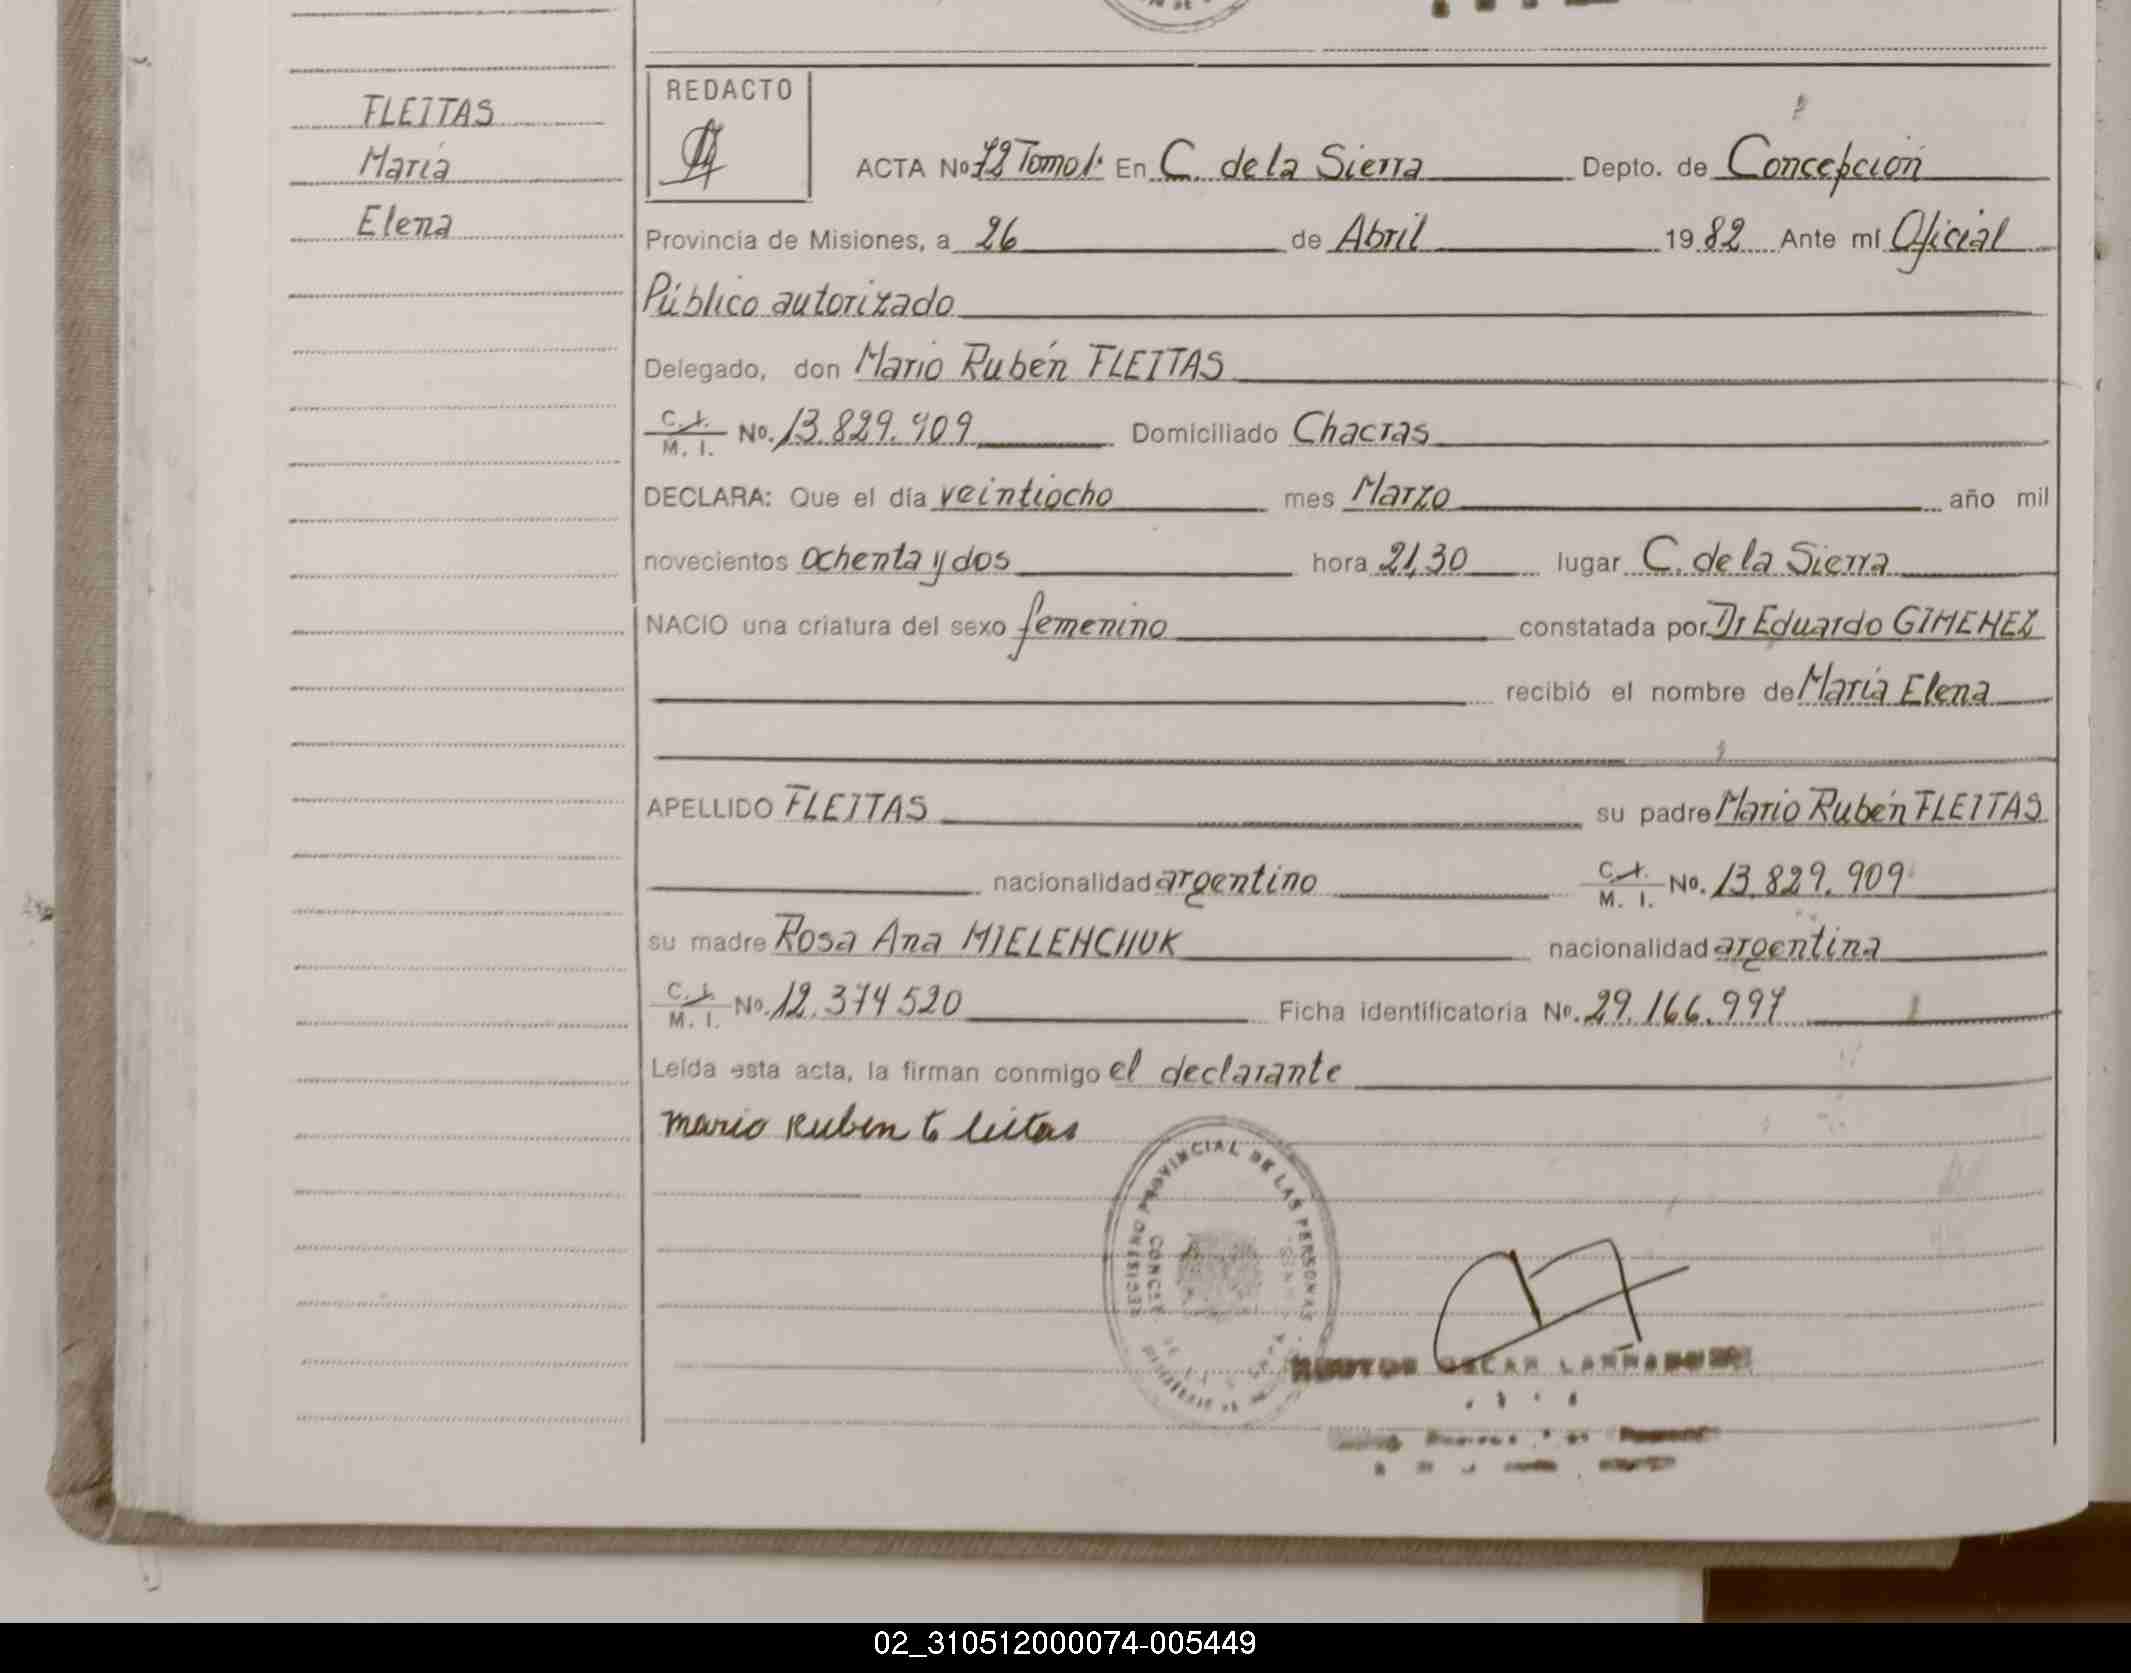 FLEITAS
María
Elena
REDACTO
ACTA No 78 Tomo 1º En C. de la Sierra Depto. de Concepción
Provincia de Misiones, a 26 de Abril 1982 Ante mí Oficial
Público autorizado
Delegado, don Mario Rubén FLEITAS
C. I. / M. I. No. 13.829.909 Domiciliado Chacras
DECLARA: Que el día veintiocho mes Marzo año mil
novecientos ochenta y dos hora 21,30 lugar C. de la Sierra
NACIO una criatura del sexo femenino constatada por Dr Eduardo GIMENEZ
recibió el nombre de María Elena
APELLIDO FLEITAS su padre Mario Rubén FLEITAS
nacionalidad argentino C. I. / M. I. No. 13.829.909
su madre Rosa Ana MIELENCHUK nacionalidad argentina
C. I. / M. I. No. 12.374520 Ficha identificatoria No. 29.166.997
Leída esta acta, la firman conmigo el declarante
mario Ruben fleitas
PROVINCIAL DE LAS PERSONAS
MISIONES
OSCAR
02_310512000074-005449